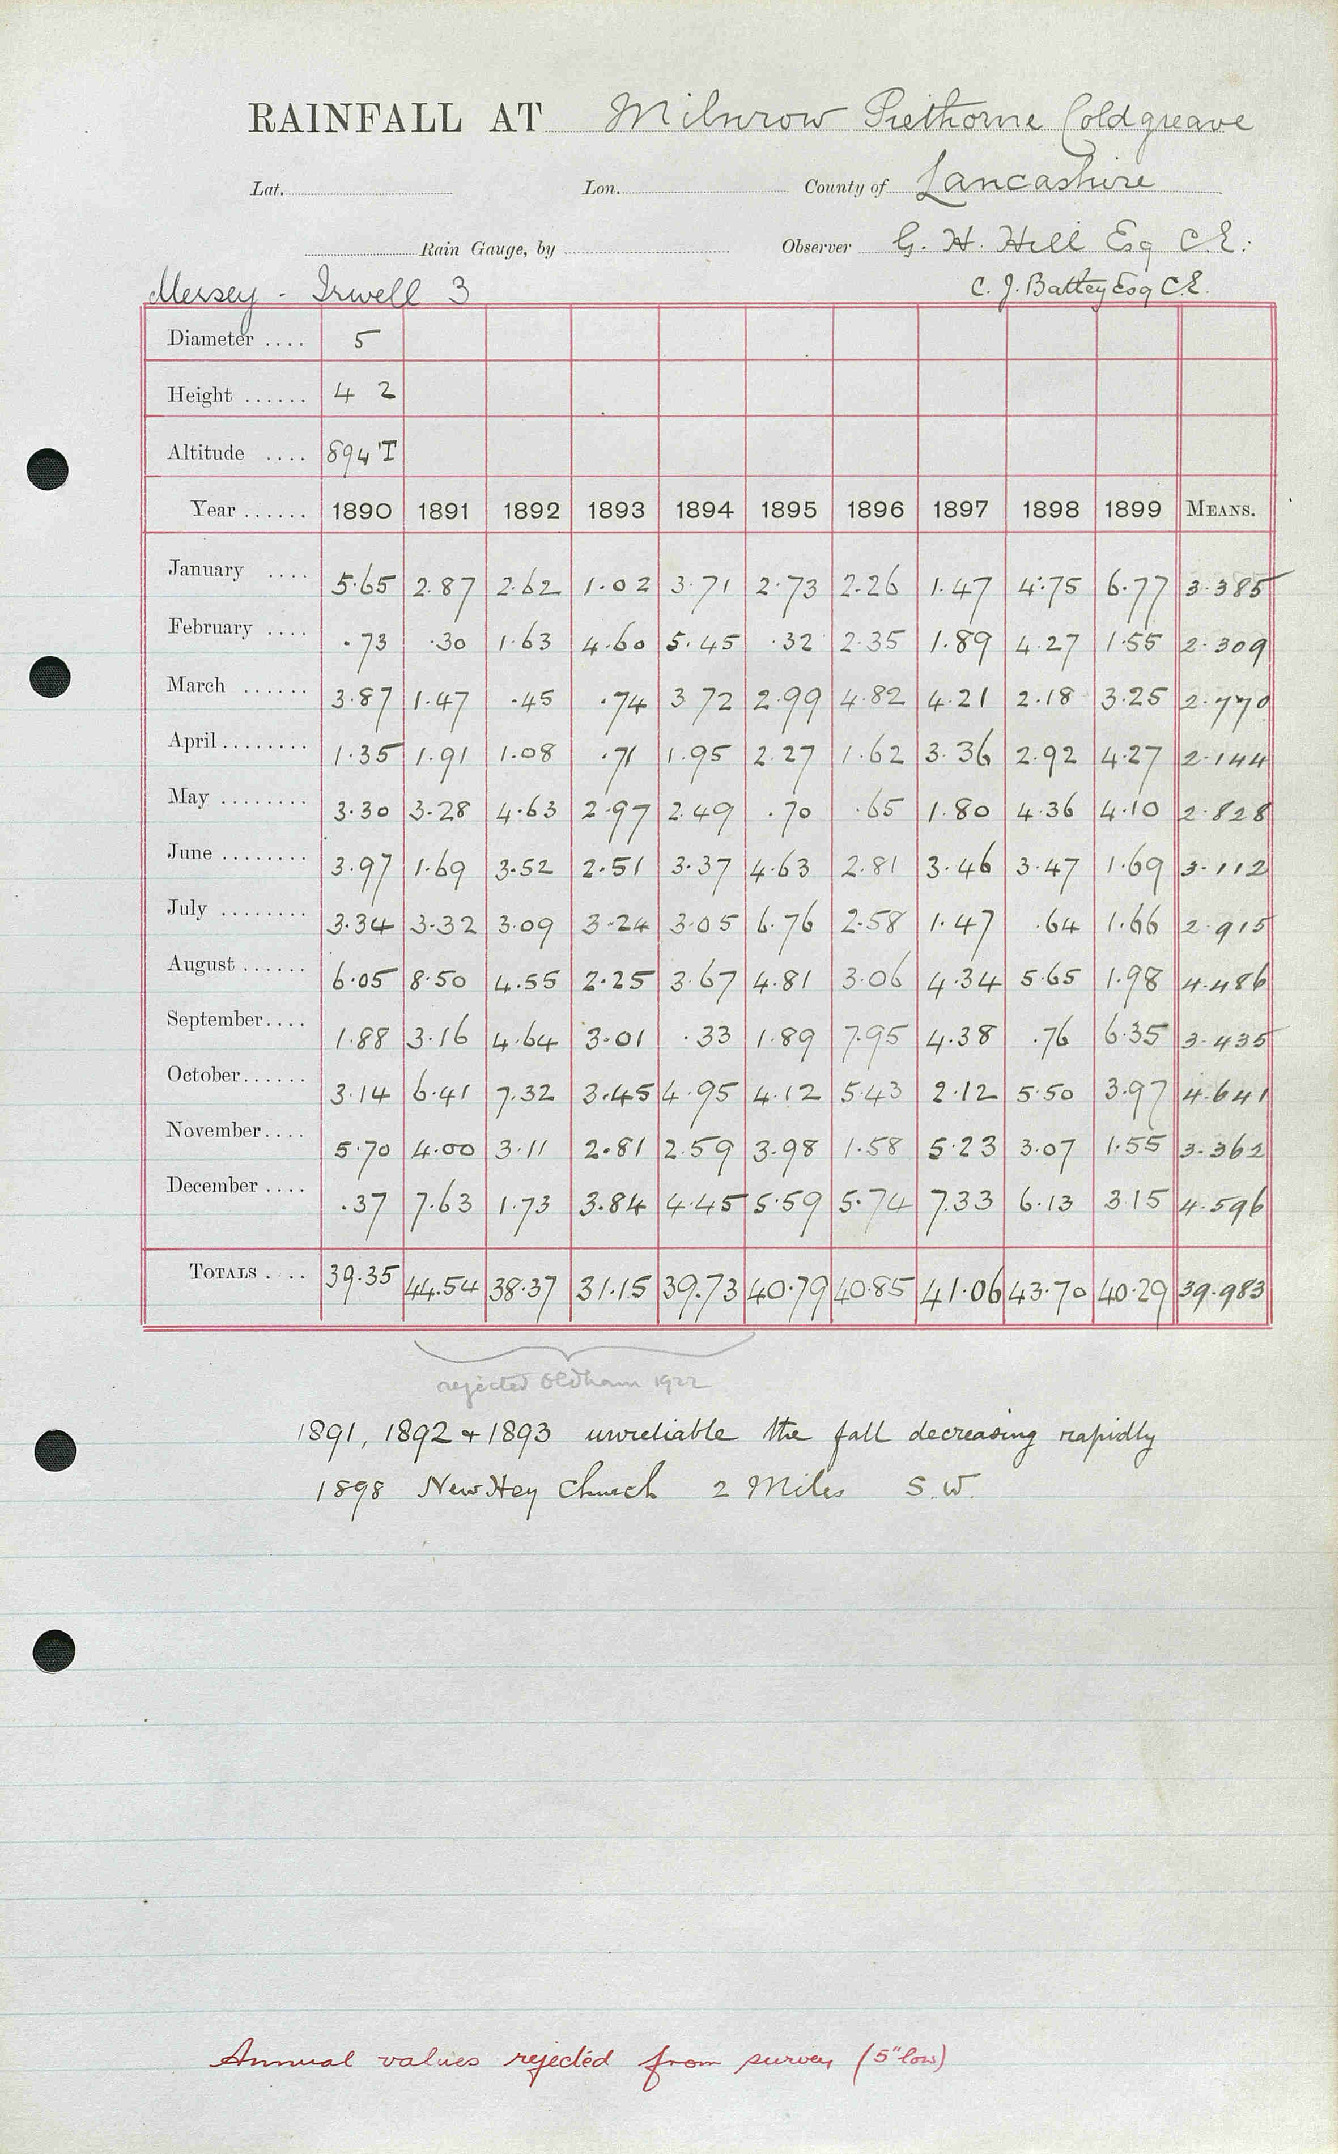 RAINFALL AT Milnrow Piethorne Coldgreave
Lat. Lon. County of Lancashire
Rain Gauge, by Observer G. H. Hill Esq C.E.
Mersey - Irwell 3 C. J. Battey Esq C.E.
Diameter .... 5
Height ...... 4 2
Altitude .... 894 T
Year ...... 1890 1891 1892 1893 1894 1895 1896 1897 1898 1899 MEANS.
January .... 5.65 2.87 2.62 1.02 3.71 2.73 2.26 1.47 4.75 6.77 3.385
February .... .73 .30 1.63 4.60 5.45 .32 2.35 1.89 4.27 1.55 2.309
March ...... 3.87 1.47 .45 .74 3 72 2.99 4.82 4.21 2.18 3.25 2.770
April ........ 1.35 1.91 1.08 .71 1.95 2.27 1.62 3.36 2.92 4.27 2.144
May ........ 3.30 3.28 4.63 2.97 2.49 .70 .65 1.80 4.36 4.10 2.828
June ........ 3.97 1.69 3.52 2.51 3.37 4.63 2.81 3.46 3.47 1.69 3.112
July ........ 3.34 3.32 3.09 3.24 3.05 6.76 2.58 1.47 .64 1.66 2.915
August ...... 6.05 8.50 4.55 2.25 3.67 4.81 3.06 4.34 5.65 1.98 4.486
September .... 1.88 3.16 4.64 3.01 .33 1.89 7.95 4.38 .76 6.35 3.435
October ...... 3.14 6.41 7.32 3.45 4.95 4.12 5.43 2.12 5.50 3.97 4.641
November .... 5.70 4.00 3.11 2.81 2.59 3.98 1.58 5.23 3.07 1.55 3.362
December .... .37 7.63 1.73 3.84 4.45 5.59 5.74 7.33 6.13 3.15 4.596
TOTALS .... 39.35 44.54 38.37 31.15 39.73 40.79 40.85 41.06 43.70 40.29 39.983
rejected Oldham 1922
1891, 1892 + 1893 unreliable the fall decreasing rapidly
1898 New Hey Church 2 Miles S.W.
Annual values rejected from survey (5" low)